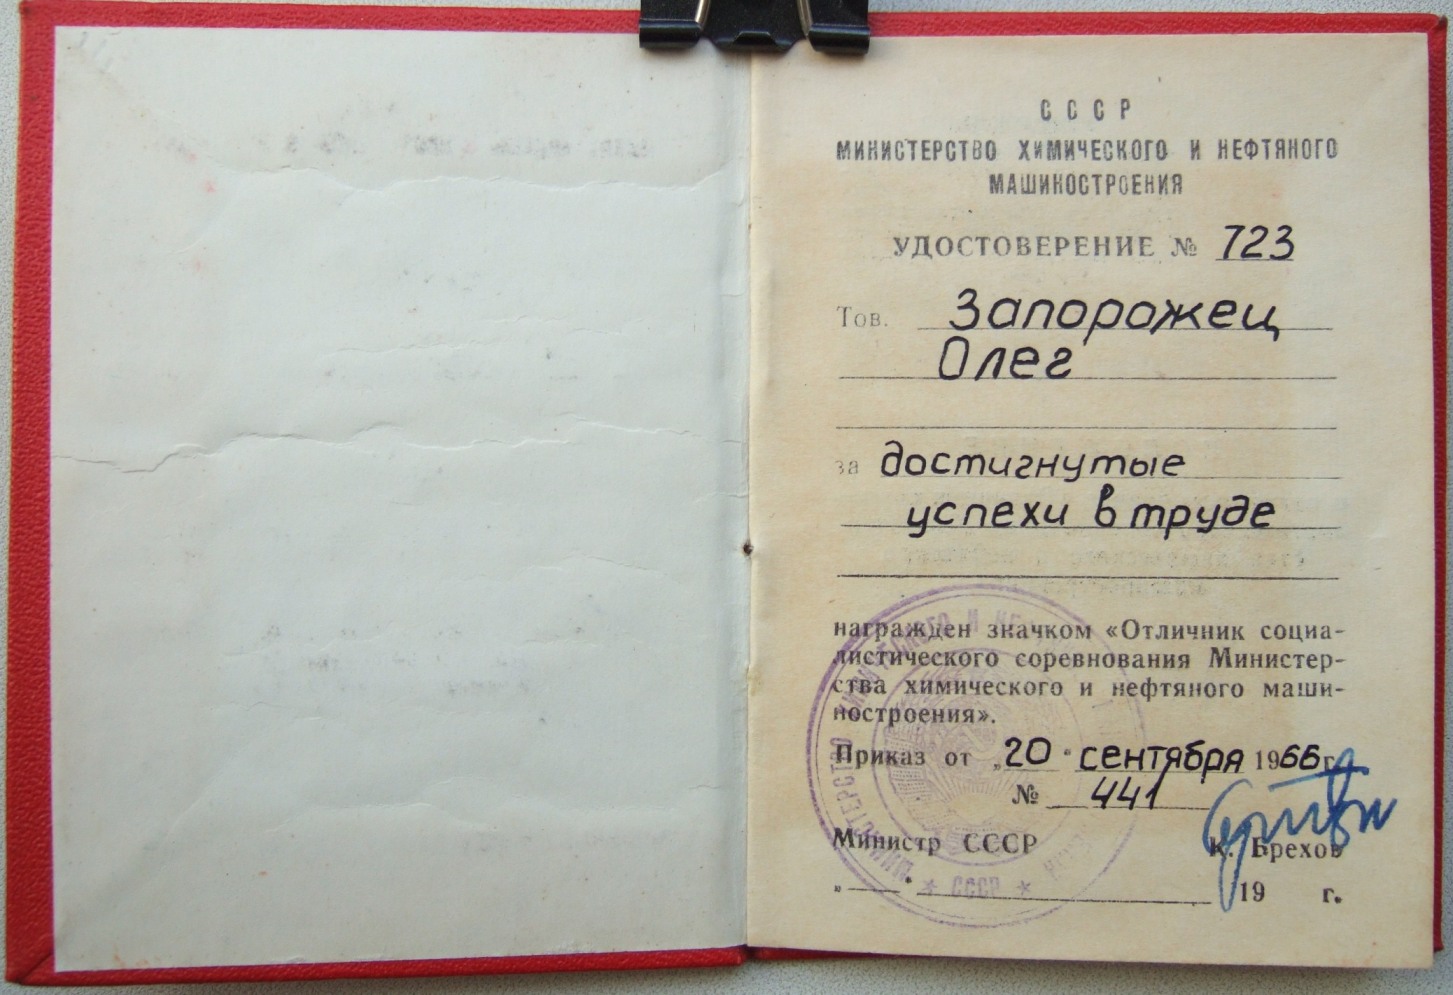 СССР
МИНИСТЕРСТВО ХИМИЧЕСКОГО И НЕФТЯНОГО
МАШИНОСТРОЕНИЯ
УДОСТОВЕРЕНИЕ № 723
Тов. Запорожец
Олег
за достигнутые
успехи в труде
награжден значком «Отличник социа-
листического соревнования Министер-
ства химического и нефтяного маши-
ностроения».
Приказ от „20" сентября 1966 г.
№ 441
Министр СССР К. Брехов
„ " 19 г.
МИНИСТЕРСТВО ХИМИЧЕСКОГО И
* СССР *